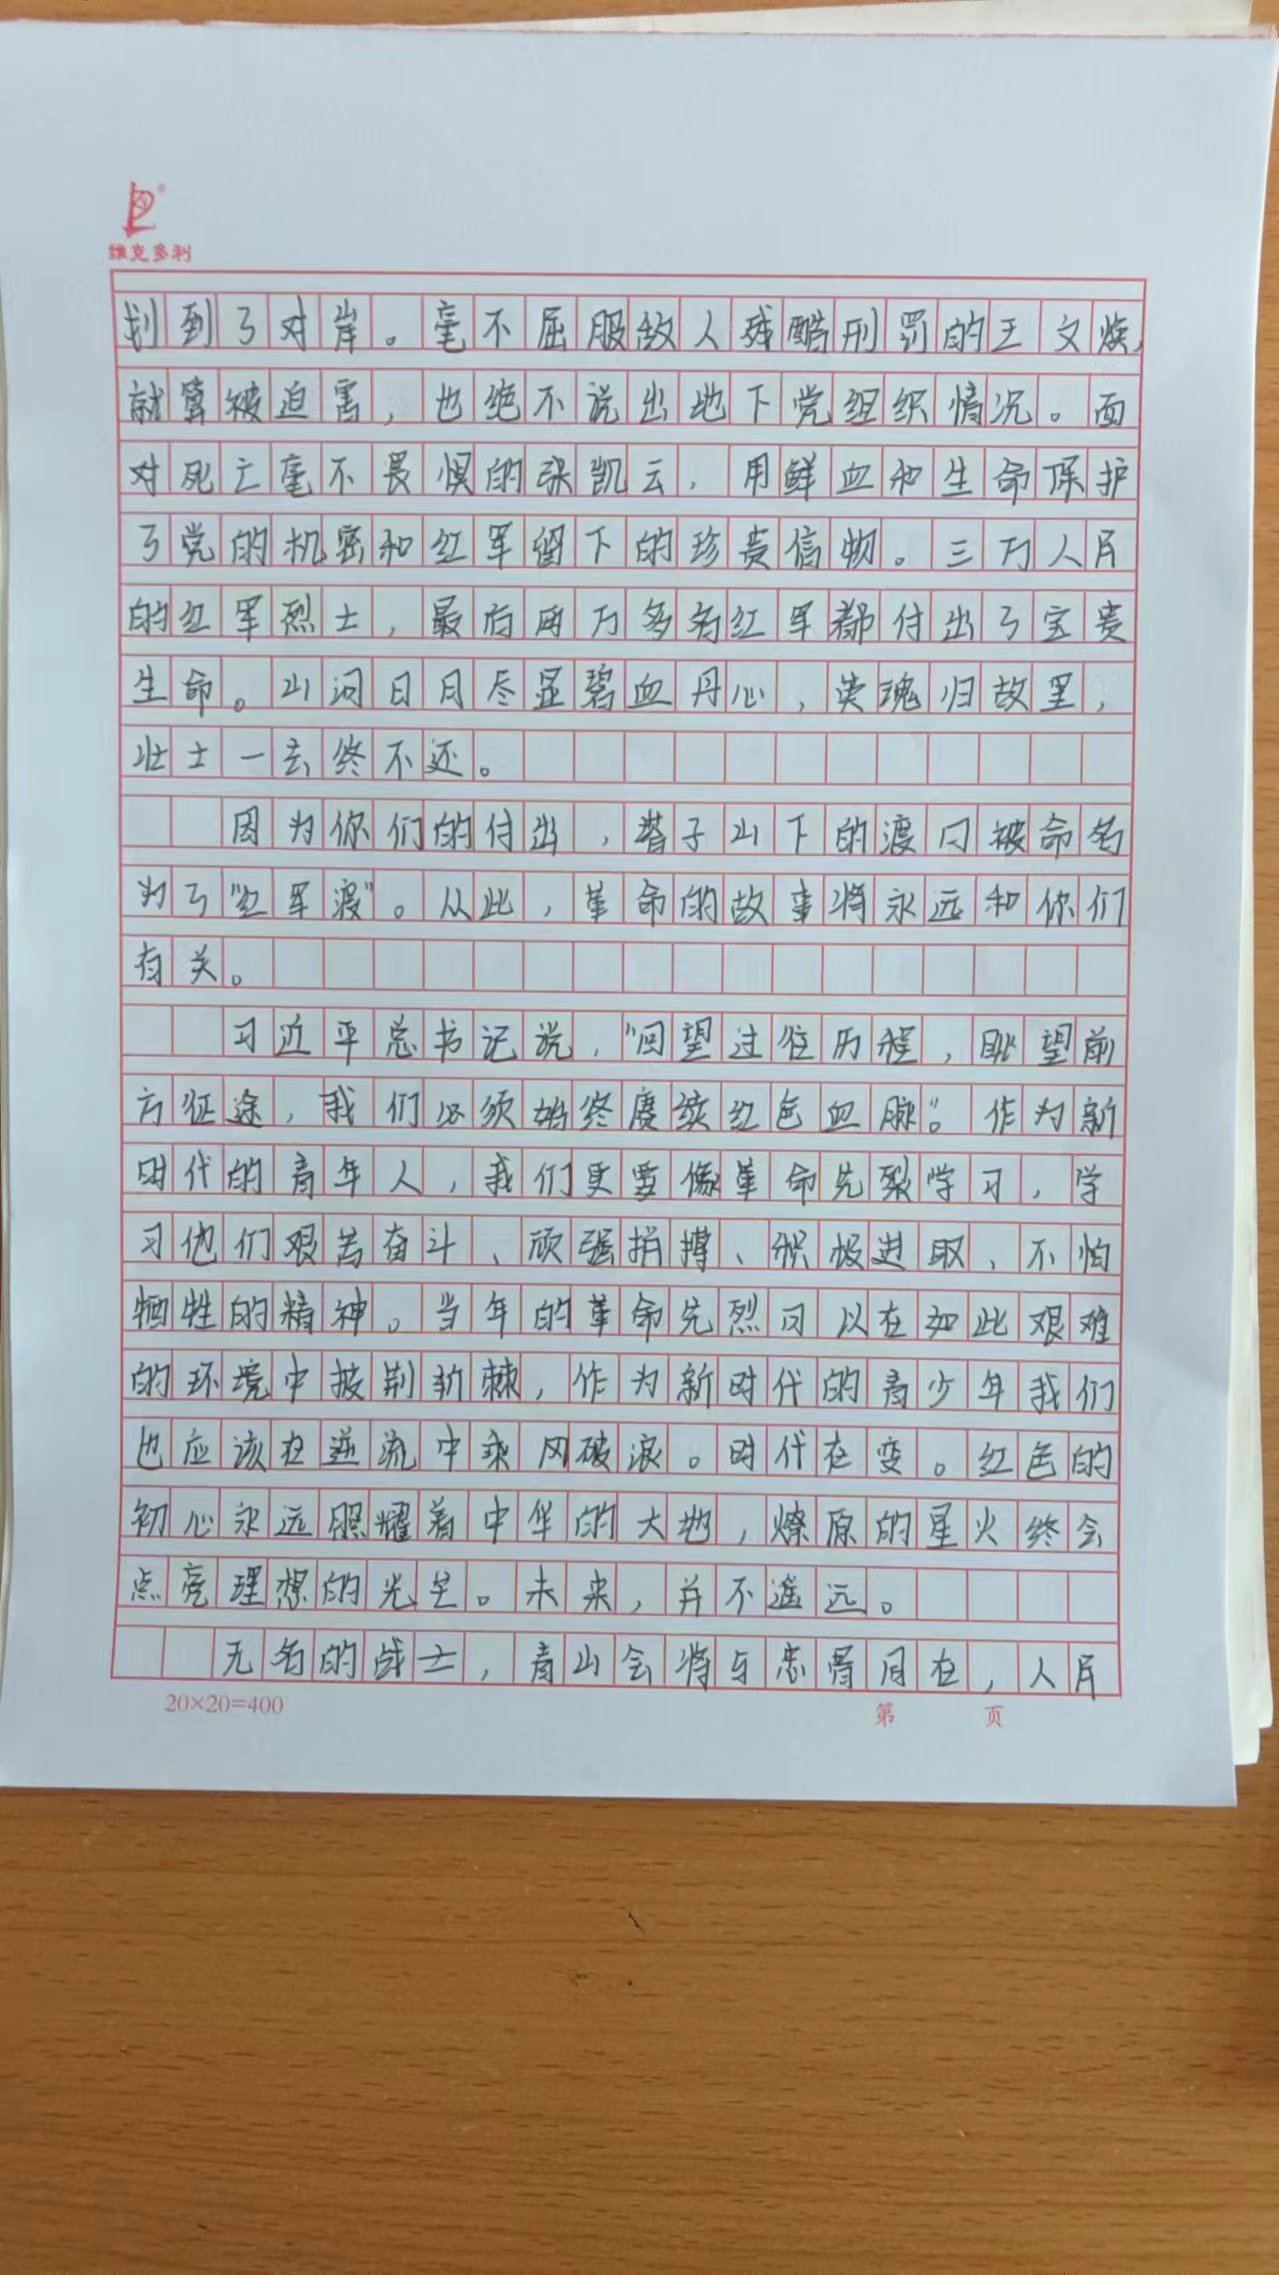 维克多利
划到了对岸。毫不屈服敌人残酷刑罚的王文焕,
就算被迫害，也绝不说出地下党组织情况。面
对死亡毫不畏惧的张凯云，用鲜血和生命保护
了党的机密和红军留下的珍贵信物。三万人民
的红军烈士，最后两万多名红军都付出了宝贵
生命。山河日月尽显碧血丹心，英魂归故里，
壮士一去终不还。
因为你们的付出，塔子山下的渡口被命名
为了“红军渡”。从此，革命的故事将永远和你们
有关。
习近平总书记说，“回望过往历程，眺望前
方征途，我们必须始终赓续红色血脉”。作为新
时代的青年人，我们更要像革命先裂学习，学
习他们艰苦奋斗、顽强捎搏、积极进取、不怕
牺牲的精神。当年的革命先烈可以在如此艰难
的环境中披荆斩棘，作为新时代的青少年我们
也应该在逆流中乘风破浪。时代在变。红色的
初心永远照耀着中华的大地，燎原的星火终会
点亮理想的光芒。未来，并不遥远。
无名的战士，青山会将与忠骨同在，人民
20×20=400
第 页